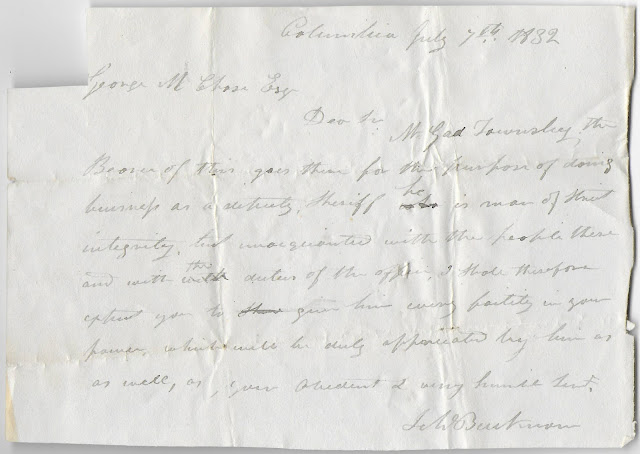 Columbia July 7th. 1832
George M Chase Esq
Dear Sir
Mr Gad Townsley, the
Bearer of this goes there for the purpose of doing
business as a deputy Sheriff he is man of strict
integrity, but unacquainted with the people there
and with the duties of the office, I shole therefore
expect you to give him every facility in your
power, which will be duly appreciated by him as
as well, as, your obedient & very humble Servt.
Buckman